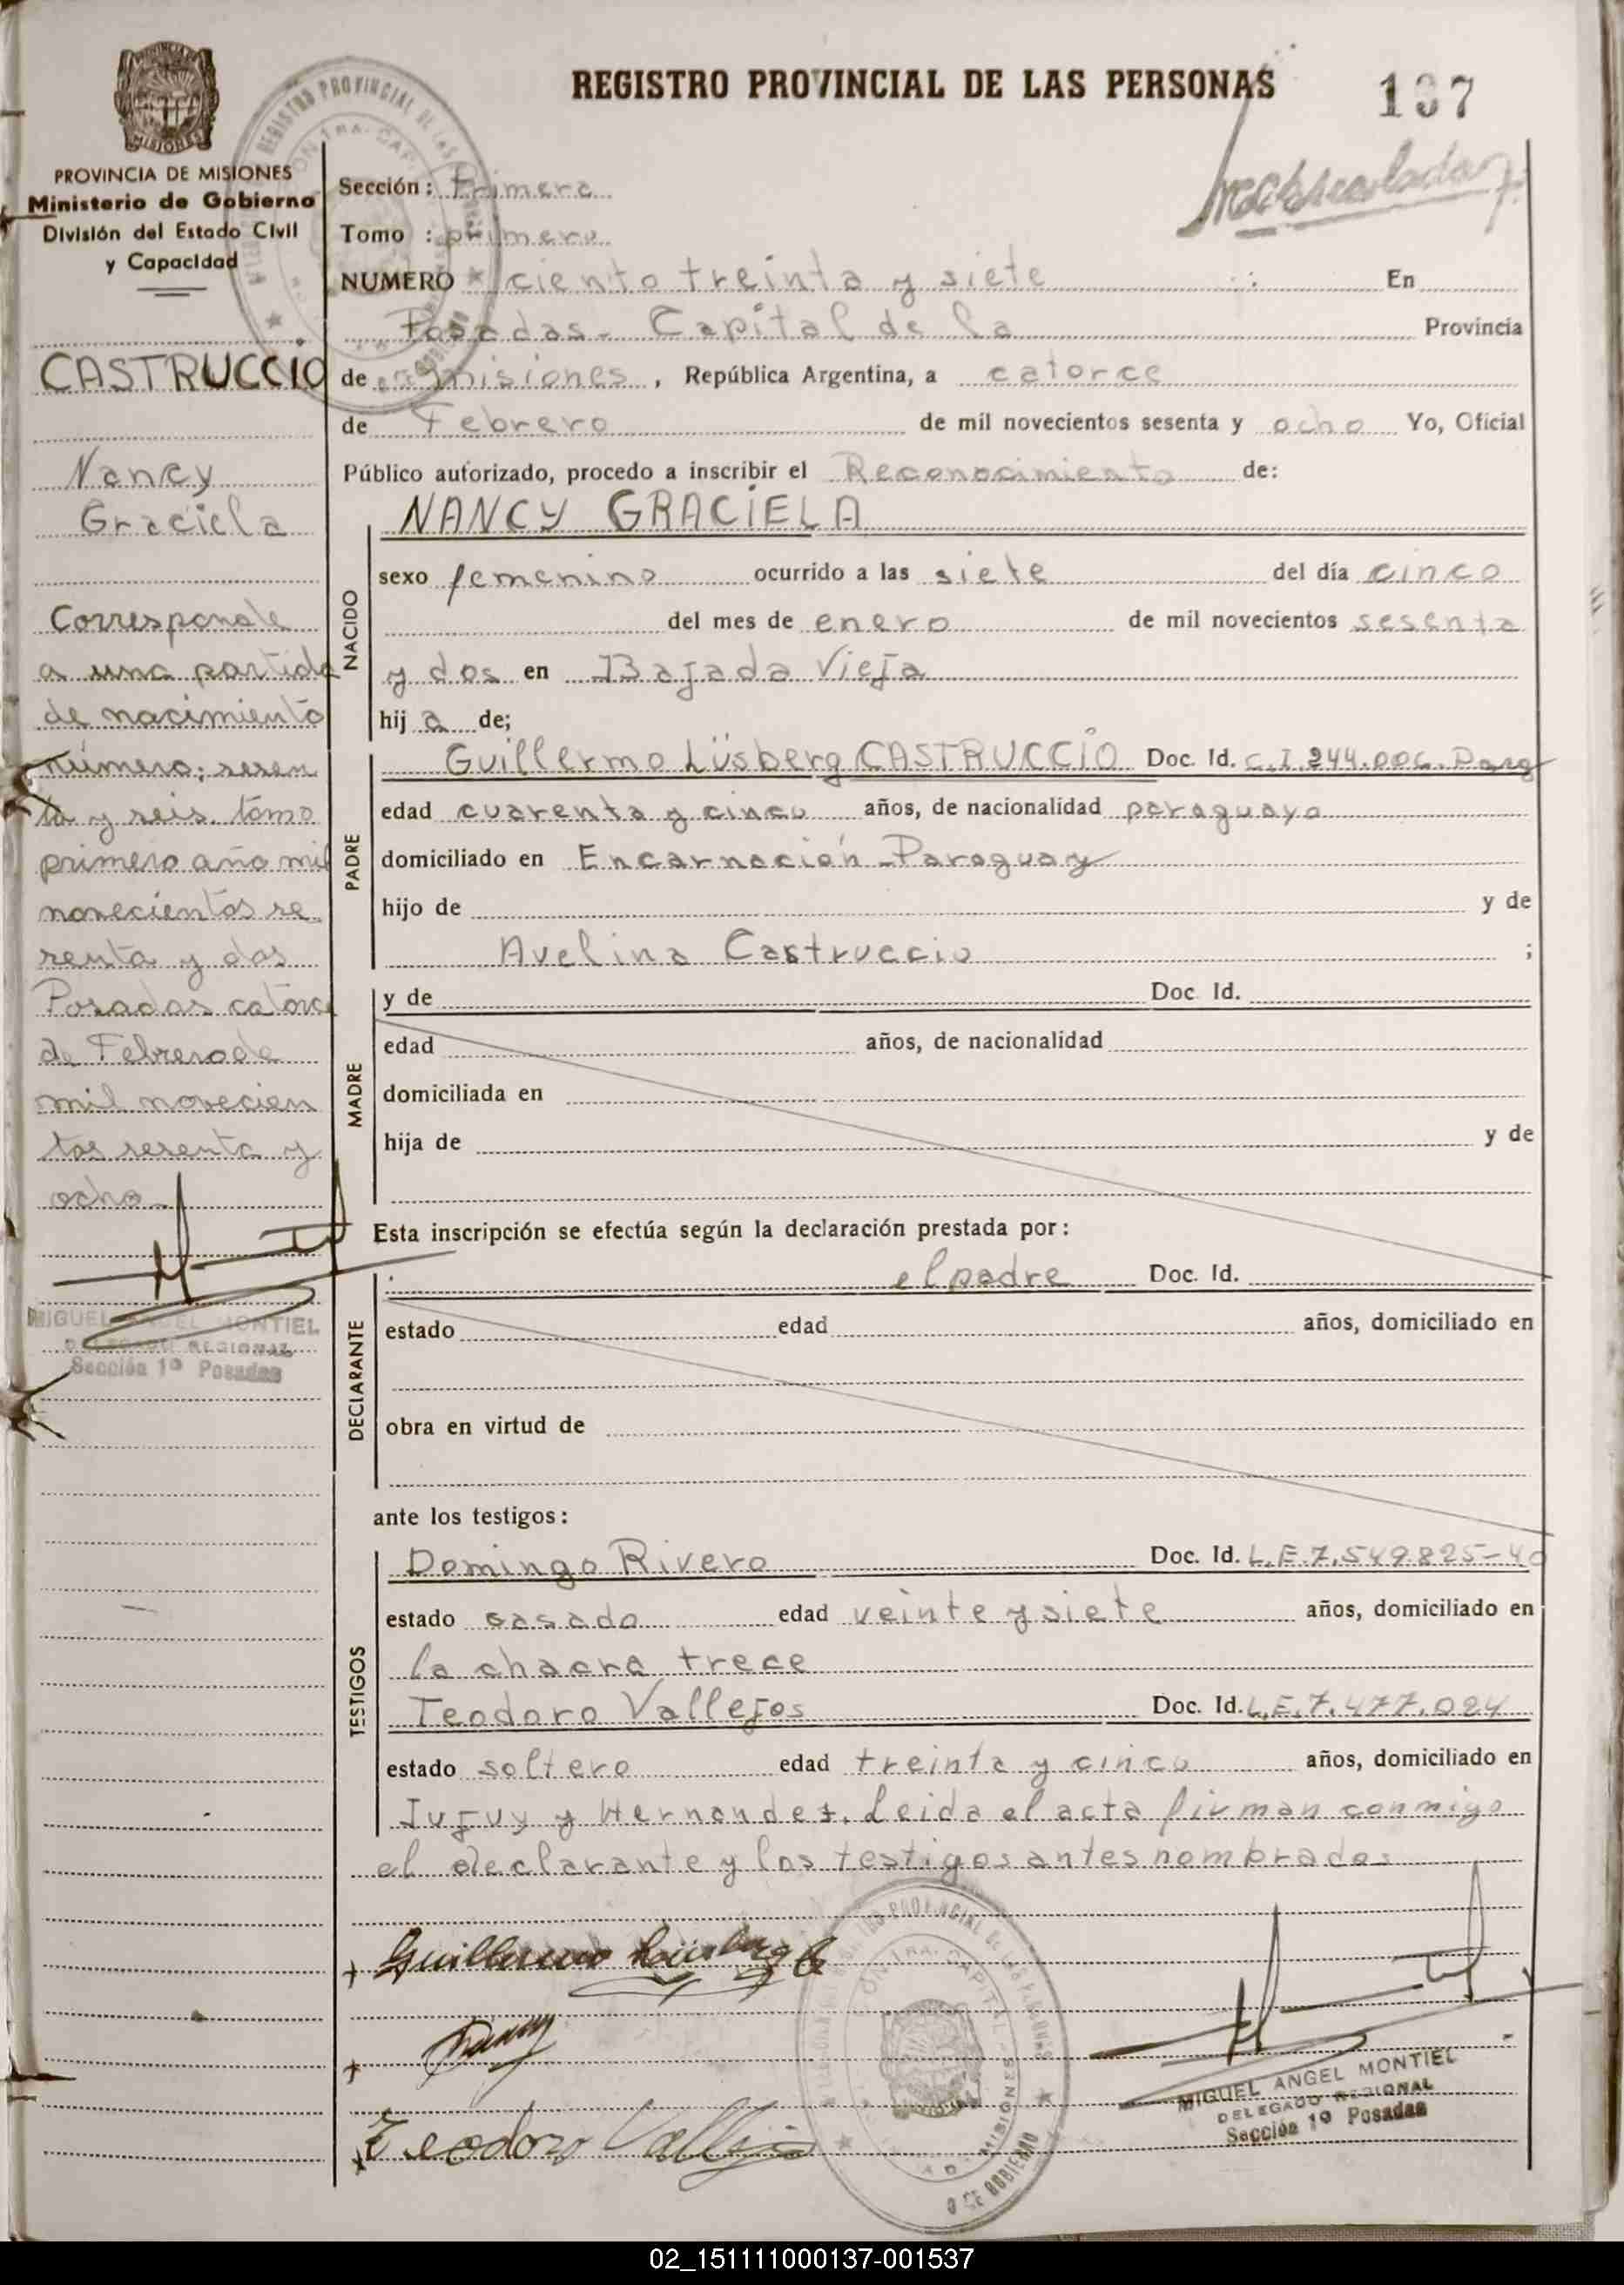 REGISTRO PROVINCIAL DE LAS PERSONAS
137
PROVINCIA DE MISIONES
Ministerio de Gobierno
División del Estado Civil
y Capacidad
CASTRUCCIO
Nancy
Graciela
Corresponde
a una partida
de nacimiento
número; sesen
ta y seis. tomo
primero año mil
novecientos se
senta y dos
Posadas catorce
de Febrero de
mil novecien
tos sesenta y
ocho
MIGUEL ANGEL MONTIEL
DELEGADO REGIONAL
Sección 1º Posadas
Sección: Primera
Tomo : primero
NUMERO ciento treinta y siete En
Posadas - Capital de la Provincia
de misiones, República Argentina, a catorce
de Febrero de mil novecientos sesenta y ocho Yo, Oficial
Público autorizado, procedo a inscribir el Reconocimiento de:
NACIDO
NANCY GRACIELA
sexo femenino ocurrido a las siete del día cinco
del mes de enero de mil novecientos sesenta
y dos en Bajada Vieja
hij a de;
PADRE
Guillermo Lüsberg CASTRUCCIO Doc. Id. C.I. 244.006. Parg
edad cuarenta y cinco años, de nacionalidad paraguaya
domiciliado en Encarnación - Paraguay
hijo de y de
Avelina Castruccio ;
MADRE
y de Doc. Id.
edad años, de nacionalidad
domiciliada en
hija de y de
Esta inscripción se efectúa según la declaración prestada por:
DECLARANTE
el padre Doc. Id.
estado edad años, domiciliado en
obra en virtud de
ante los testigos:
TESTIGOS
Domingo Rivero Doc. Id. L.E. 7.549.825-40
estado casado edad veinte y siete años, domiciliado en
la chacra trece
Teodoro Vallejos Doc. Id. L.E. 7.477.024
estado soltero edad treinta y cinco años, domiciliado en
Jujuy y Hernandez. Leida el acta firman conmigo
el declarante y los testigos antes nombrados
Guillermo Lüsberg C
Teodoro Vallejos
MIGUEL ANGEL MONTIEL
DELEGADO REGIONAL
Sección 1º Posadas
02_151111000137-001537